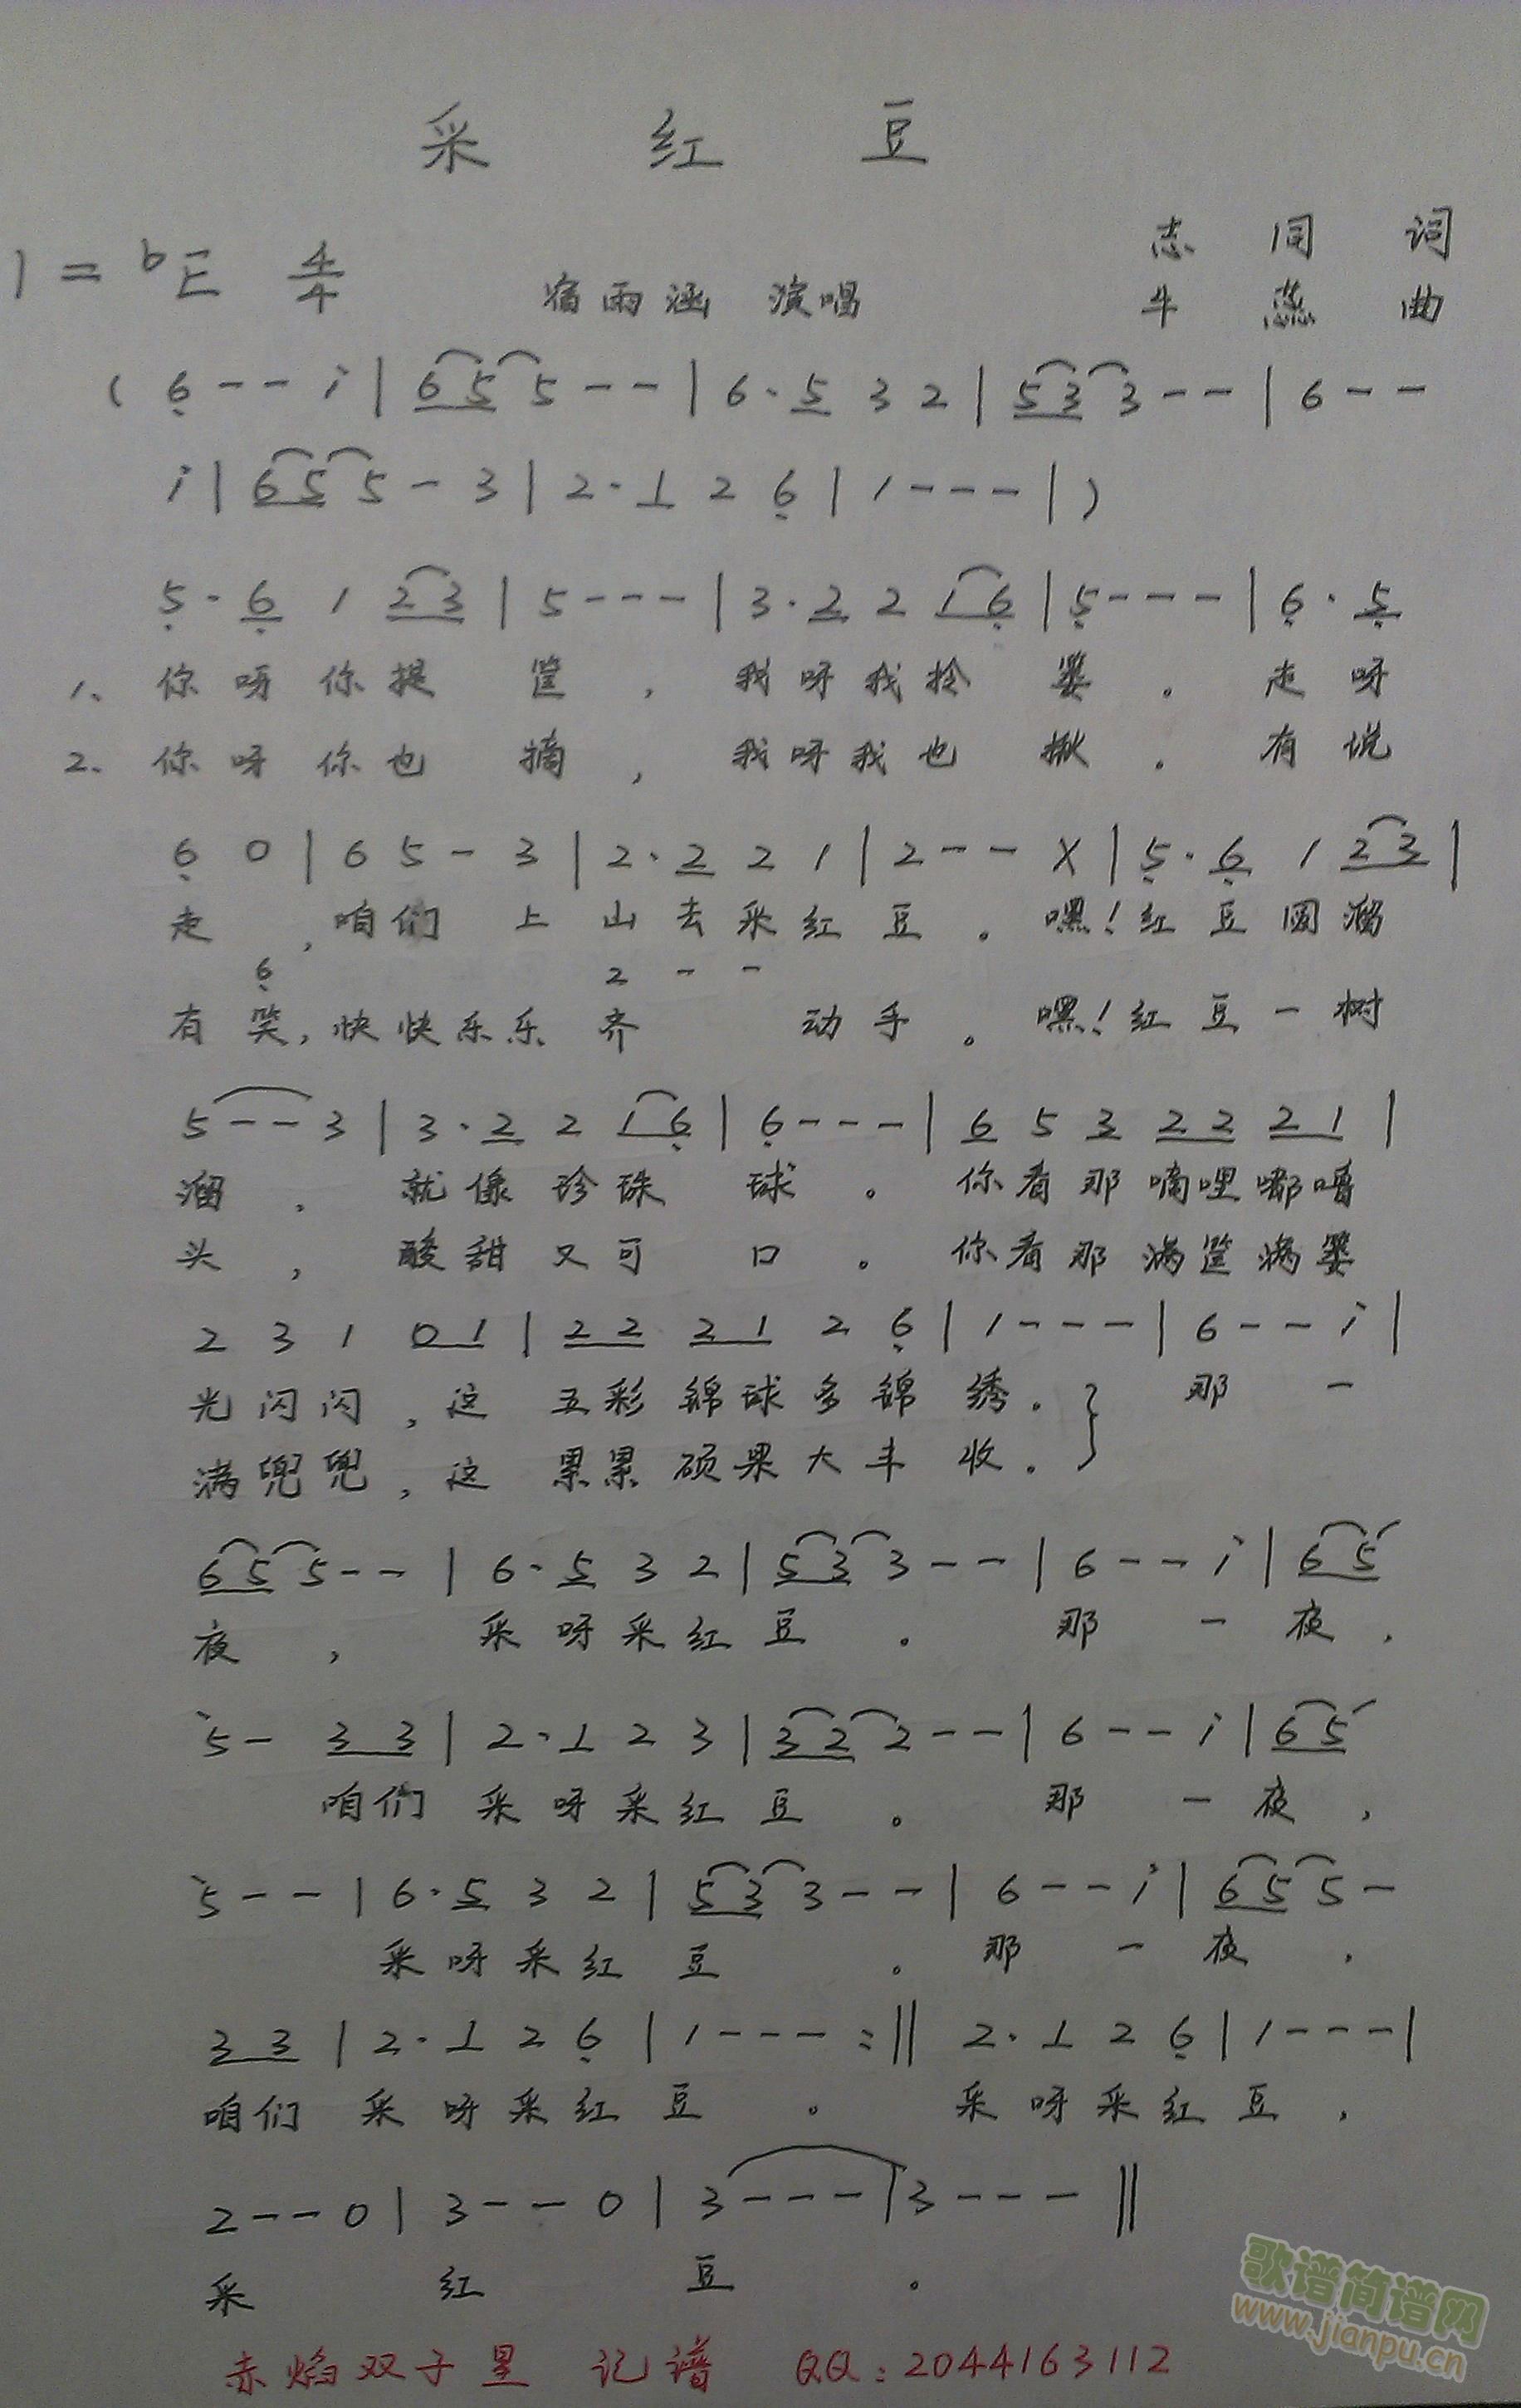 采 红 豆
志 同 词
1=bE 4/4 宿雨涵 演唱 牛燕 曲
( 6̣ - - i | 6 5 5 - - | 6 · 5 3 2 | 5 3 3 - - | 6 - -
i | 6 5 5 - 3 | 2 · 1 2 6̣ | 1 - - - | )
5̣ · 6̣ 1 2 3 | 5 - - - | 3 · 2 2 1 6̣ | 5̣ - - - | 6̣ · 5̣
1、你呀你提 筐 , 我呀我拎 篓 。 走呀
2、你呀你也 摘 , 我呀我也 揪 。 有说
6̣ 0 | 6 5 - 3 | 2 · 2 2 1 | 2 - - X | 5̣ · 6̣ 1 2 3 |
走 , 咱们 上山去采红豆 。 嘿!红豆圆溜
6̣ 2 - -
有笑,快快乐乐齐 动手 。 嘿!红豆一树
5 - - 3 | 3 · 2 2 1 6̣ | 6̣ - - - | 6 5 3 2 2 2 1 |
溜 , 就像珍珠 球 。 你看那嘀哩嘟噜
头 , 酸甜又可 口 。 你看那满筐满篓
2 3 1 0 1 | 2 2 2 1 2 6̣ | 1 - - - | 6 - - i |
光闪闪 , 这 五彩锦球多锦 绣 。} 那 一
满兜兜 , 这 累累硕果大丰 收 。}
6 5 5 - - | 6 · 5 3 2 | 5 3 3 - - | 6 - - i | 6 5
夜 , 采呀采红 豆 。 那 一 夜 ,
5 - 3 3 | 2 · 1 2 3 | 3 2 2 - - | 6 - - i | 6 5
咱们 采呀采红 豆 。 那 一 夜 ,
5 - - | 6 · 5 3 2 | 5 3 3 - - | 6 - - i | 6 5 5 -
采呀采红 豆 。 那 一 夜 ,
3 3 | 2 · 1 2 6̣ | 1 - - - :‖ 2 · 1 2 6̣ | 1 - - - |
咱们 采呀采红 豆 。 采呀采红豆 ,
2 - - 0 | 3 - - 0 | 3 - - - | 3 - - - ‖
采 红 豆 。
赤焰双子星 记谱 QQ:2044163112
歌谱简谱网
www.jianpu.cn